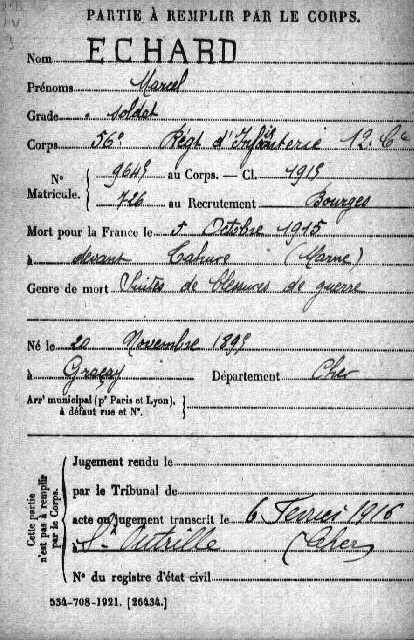 PARTIE À REMPLIR PAR LE CORPS.
Nom ECHARD
Prénoms Marcel
Grade soldat
Corps 56e Régt d'Infanterie 12. Cie
Nº Matricule. 9645 au Corps. — Cl. 1915
726 au Recrutement Bourges
Mort pour la France le 5 Octobre 1915
à devant Tahure (Marne)
Genre de mort Suites de blessures de guerre
Né le 20 Novembre 1895
à Graçay Département Cher
Arrt municipal (pr Paris et Lyon),
à défaut rue et Nº.
Cette partie
n'est pas à remplir
par le Corps.
Jugement rendu le
par le Tribunal de
acte ou jugement transcrit le 6 Fevrier 1916
à St Outrille (Cher)
Nº du registre d'état civil
534-708-1921. [26434.]